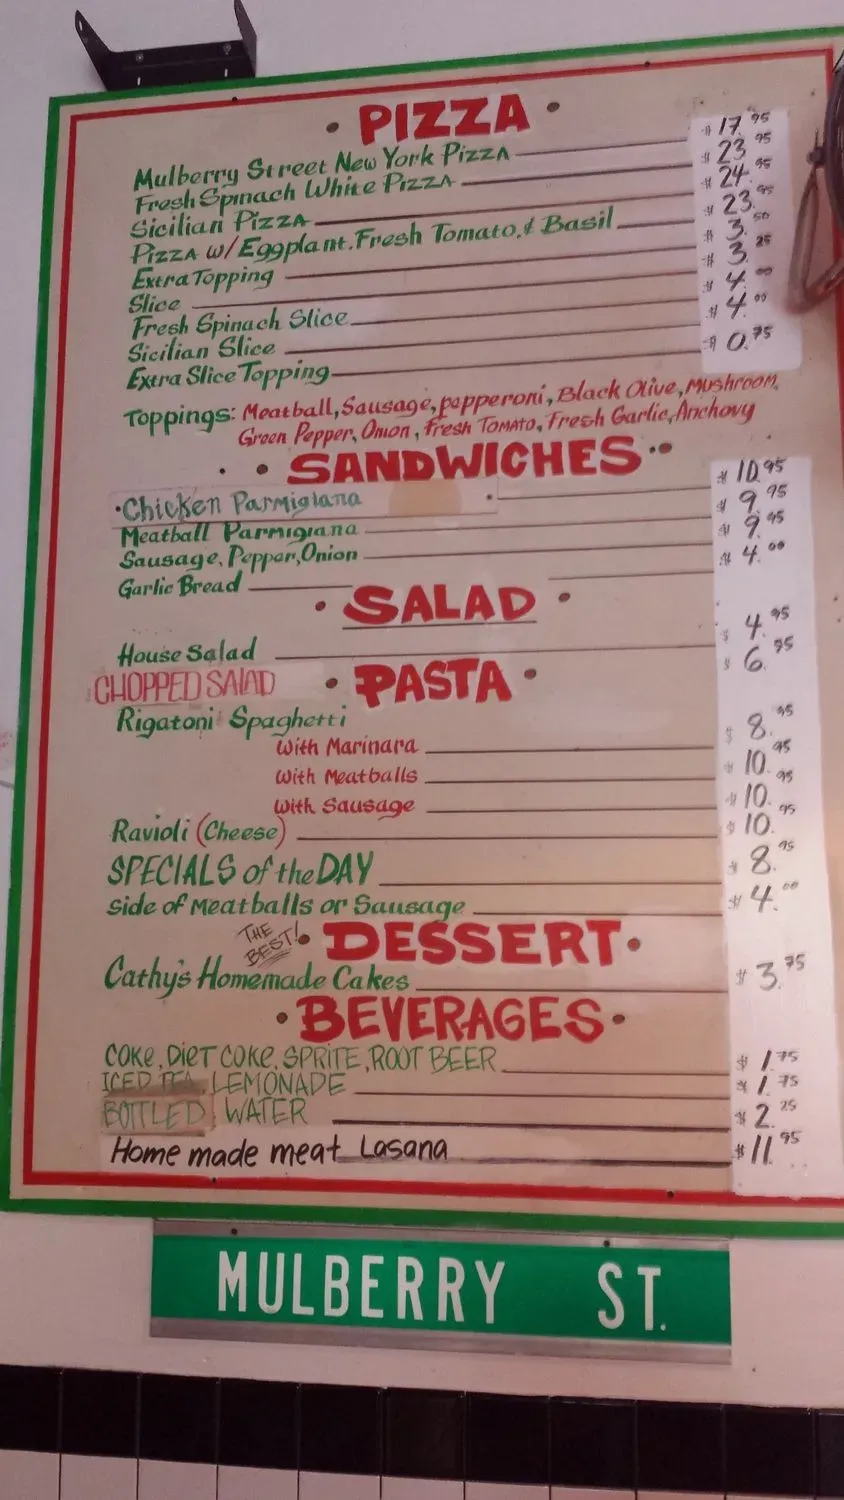 • PIZZA •
Mulberry Street New York Pizza $17.95
Fresh Spinach White Pizza $23.95
Sicilian Pizza $24.95
Pizza w/Eggplant, Fresh Tomato, & Basil $23.95
Extra Topping $3.50
Slice $3.25
Fresh Spinach Slice $4.00
Sicilian Slice $4.00
Extra Slice Topping $0.75
Toppings: Meatball, Sausage, pepperoni, Black Olive, Mushroom,
Green Pepper, Onion, Fresh Tomato, Fresh Garlic, Anchovy
• SANDWICHES •
• Chicken Parmigiana $10.95
Meatball Parmigiana $9.95
Sausage, Pepper, Onion $9.95
Garlic Bread $4.00
• SALAD •
House Salad $4.95
CHOPPED SALAD $6.95
• PASTA •
Rigatoni Spaghetti
with Marinara $8.95
with Meatballs $10.95
with Sausage $10.95
Ravioli (Cheese) $10.95
SPECIALS of the DAY $8.95
Side of Meatballs or Sausage $4.00
THE BEST!
• DESSERT •
Cathy's Homemade Cakes $3.75
• BEVERAGES •
COKE, DIET COKE, SPRITE, ROOT BEER $1.75
ICED TEA, LEMONADE $1.75
BOTTLED WATER $2.25
Home made meat Lasana $11.95
MULBERRY ST.